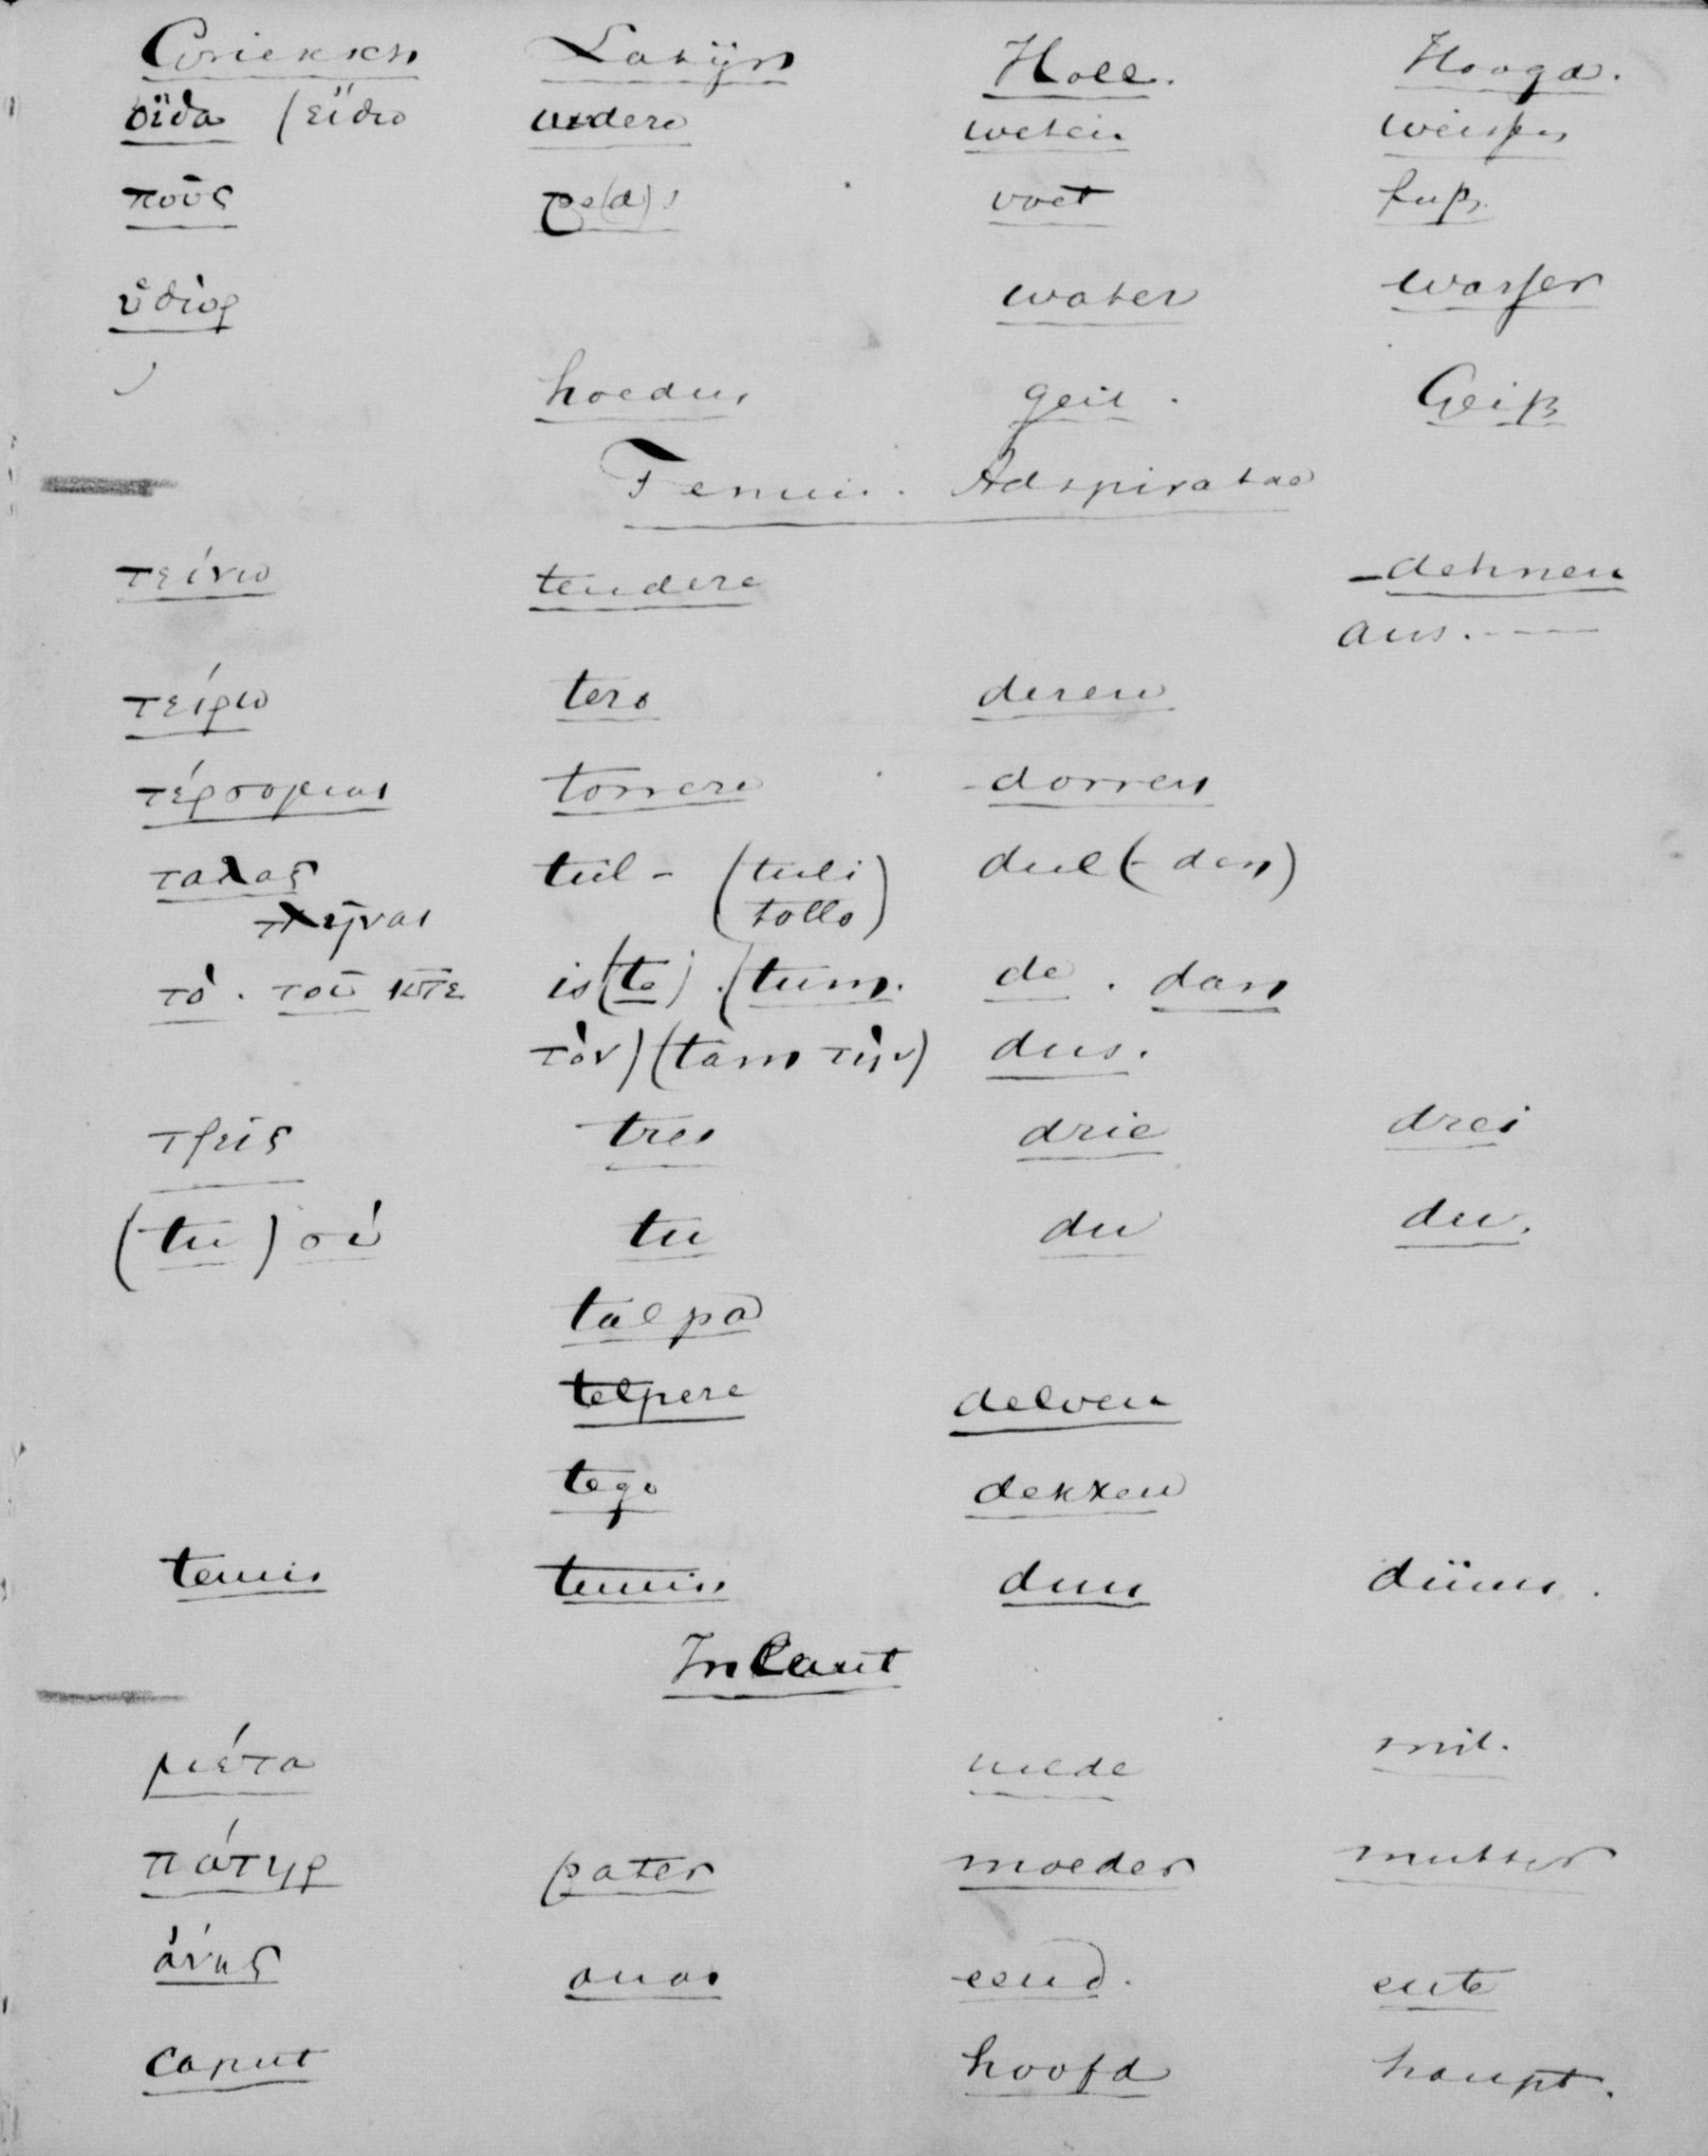 Grieksch Latijn Holl. Hoogd.
οἶδα (εἴδω videre weten weissen
πούς pe(d)s voet fuß
ὕδωρ water wasser
hoedus geit. Geiß
Tenuis. Adspiratae
τείνω tendere -dehnen
aus.----
τείρω tero deren
τέρσομαι torrere dorren
ταλας tul- (tuli dul(-den)
τλῆναι tollo)
τὸ. τοῦ κτε is(te). (tum. de. dan
τὸν) (tam τὴν) dus.
τρεῖς tres drie drei
(tu) σύ tu du du.
talpa
telpere delven
tego dekken
tenuis tenuis dun dünn.
Inlaut
μέτα mede mit.
πάτηρ pater moeder mutter
anas eend. ente
caput hoofd haupt.